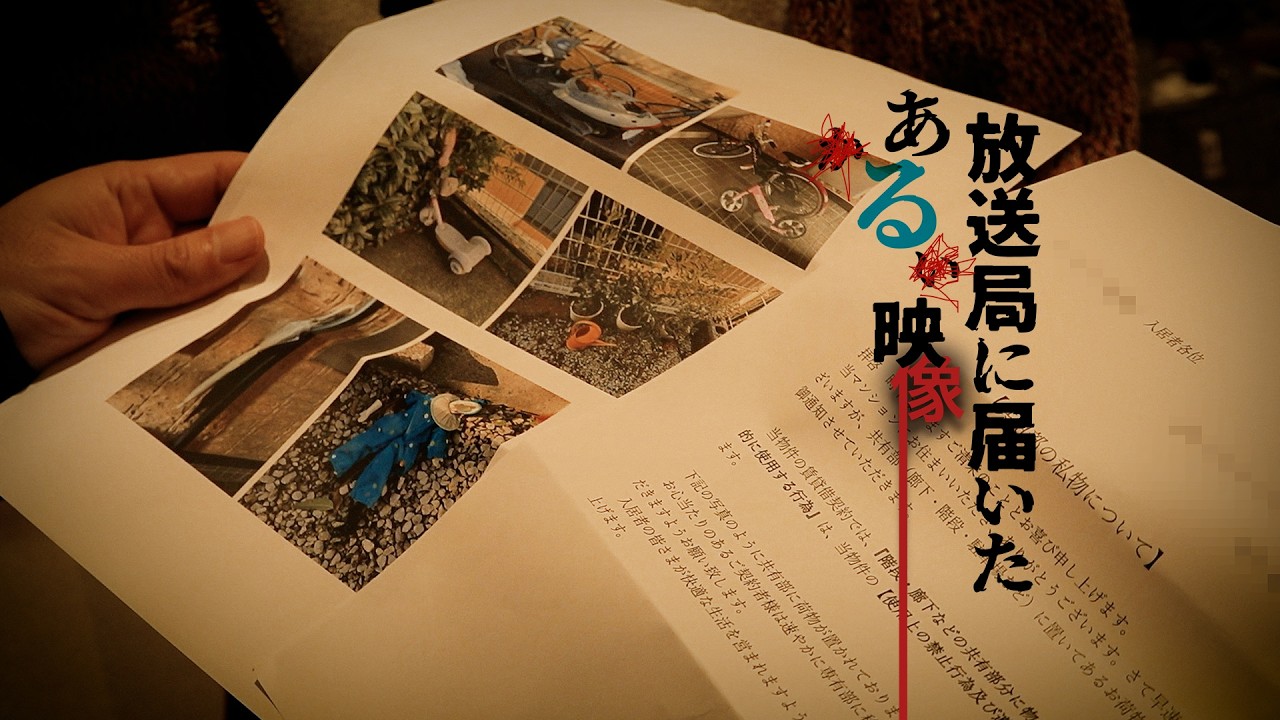 放送局に届いた
ある映像
入居者各位
部の私物について】
拝啓 ますご清 とお喜び申し上げます。
当マンション お住まいいた ありがとうございます。さて早速
ざいますが、共有部（廊下・階段・ ど）に置いてあるお荷物
御通知させていただきます。
当物件の賃貸借契約では、『階段・廊下などの共有部分に物
的に使用する行為』は、当物件の【使用上の禁止行為及び
ます。
下記の写真のように共有部に荷物が置かれておりま
お心当たりのあるご契約者様は速やかに専有部に
だきますようお願い致します。
入居者の皆さまが快適な生活を営まれますよう
上げます。